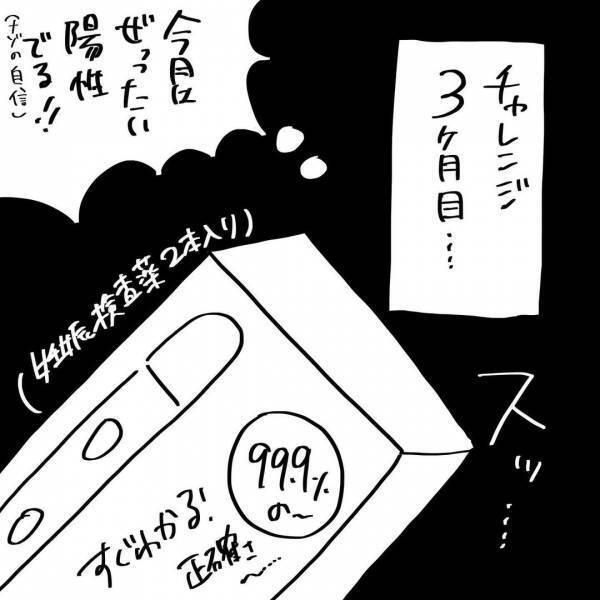 チャレンジ
3ヶ月目…
今月は
ぜったい
陽性
でる!!
(ナゾの自信)
(妊娠検査薬2本入り)
スッ…
99.9%
の〜
すぐわかる!
正確さ
〜……